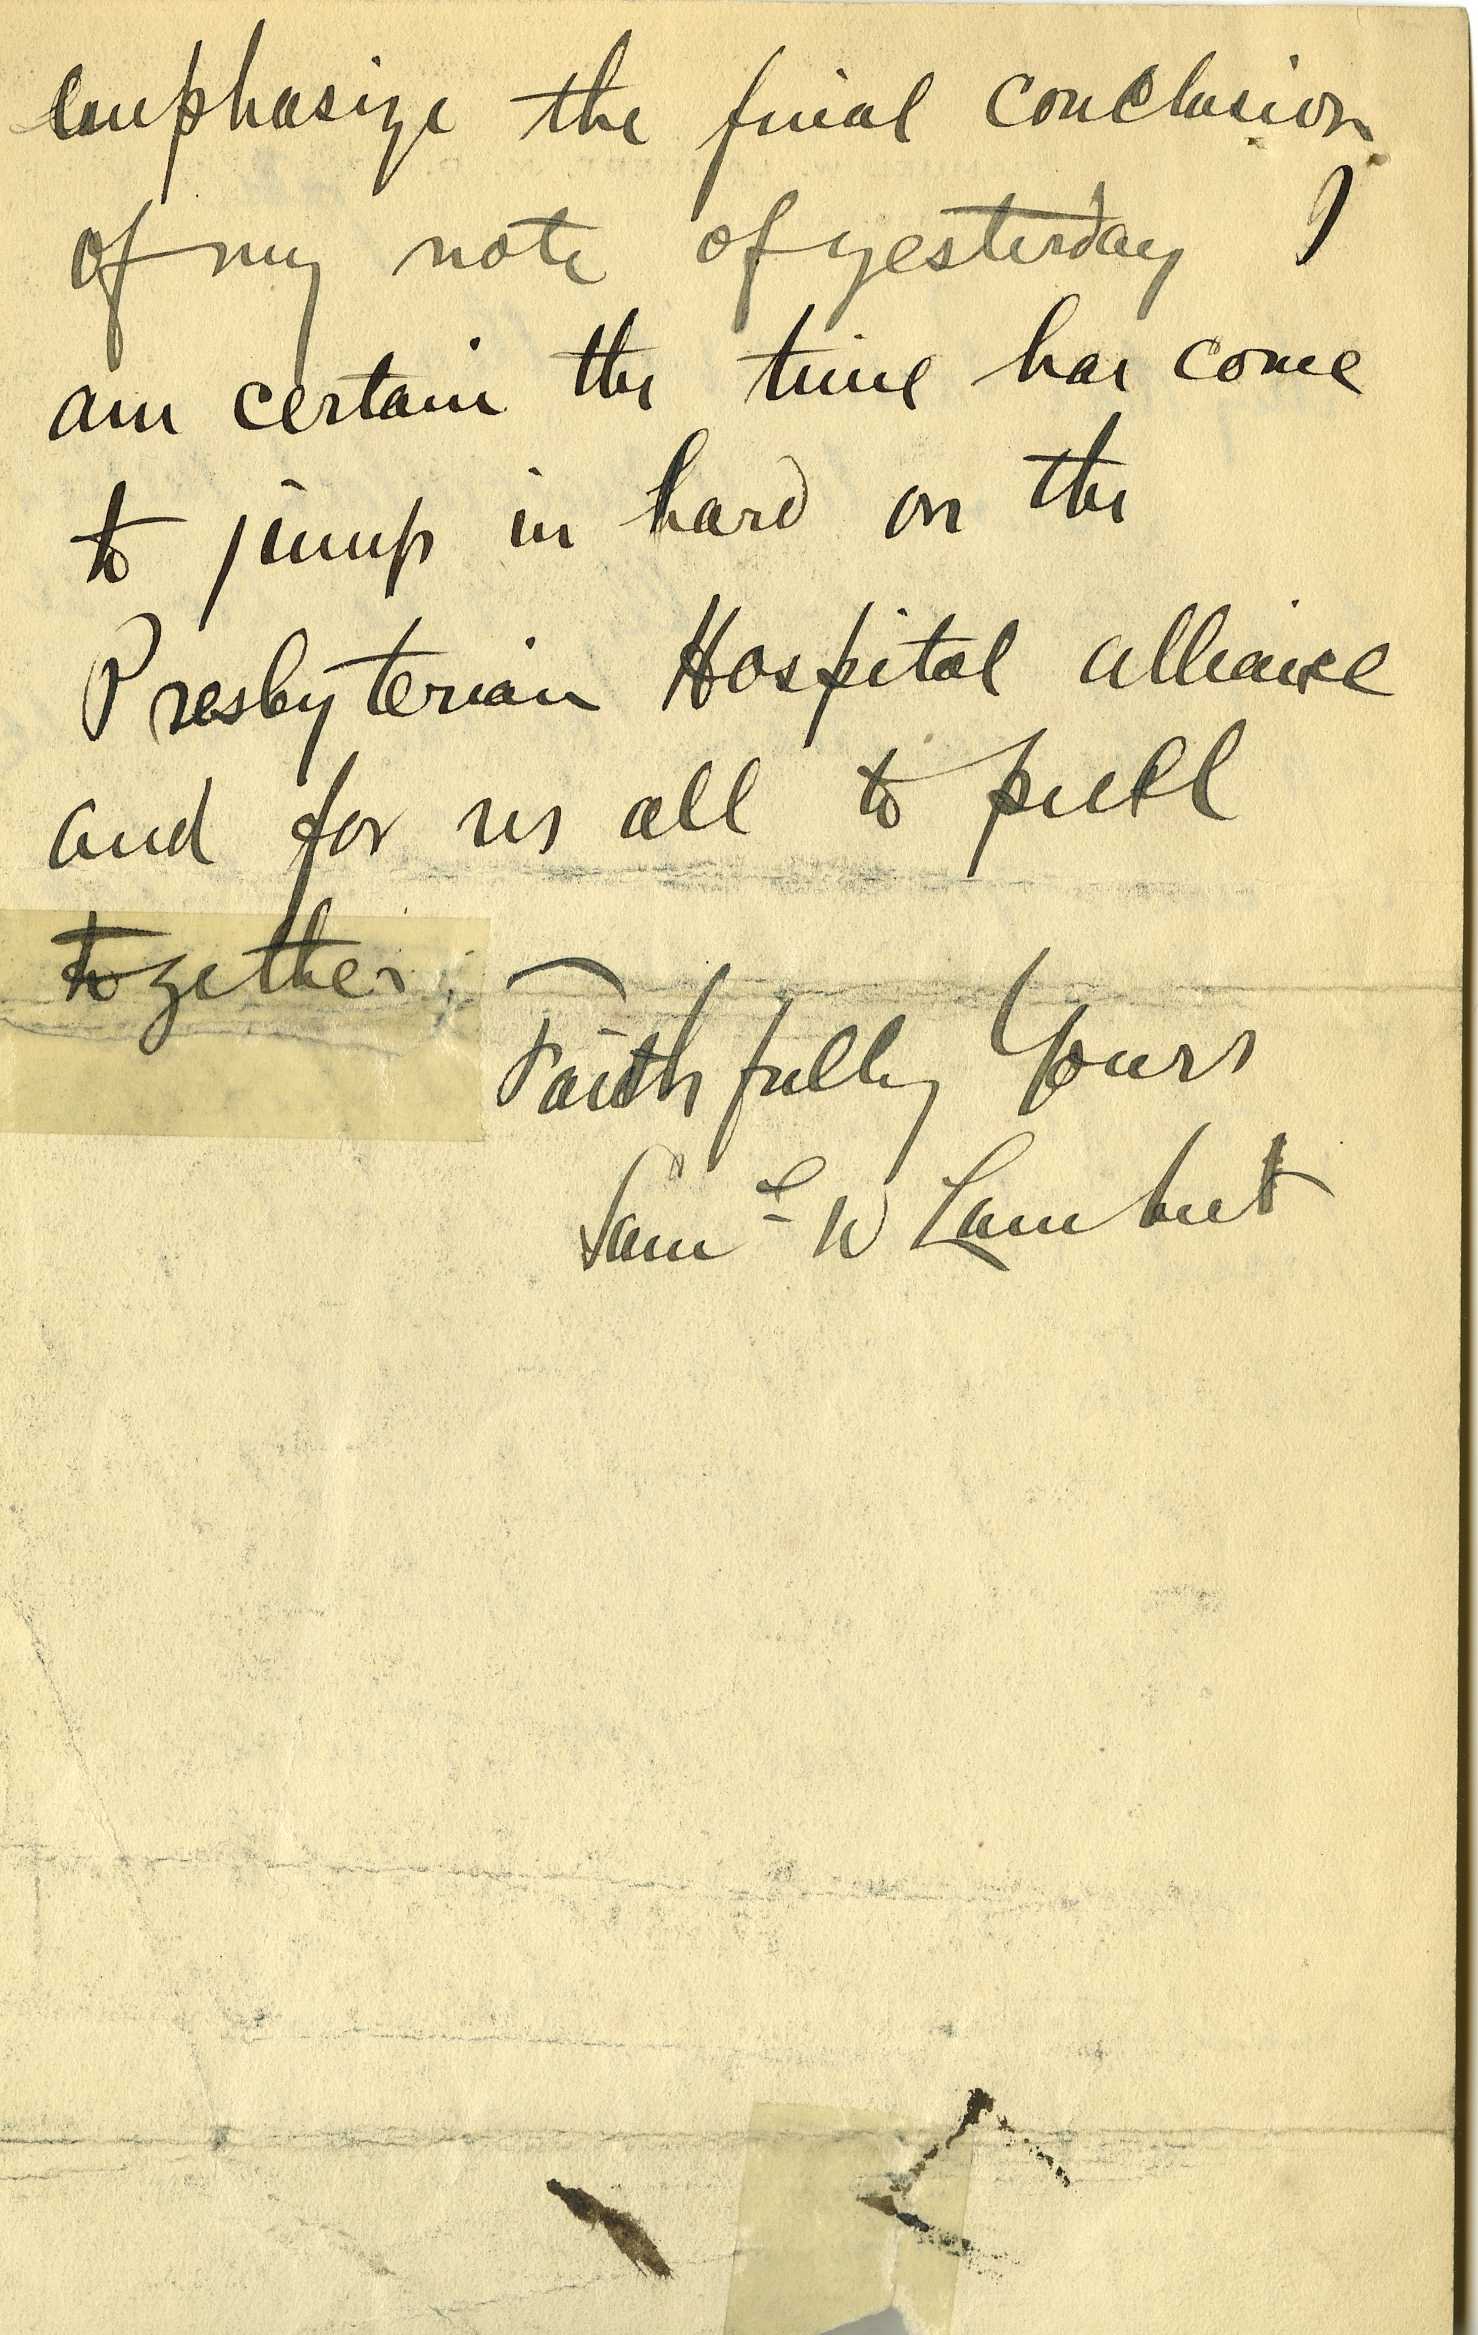 emphasize the final conclusion
of my note of yesterday I
am certain the time has come
to jump in hard on the
Presbyterian Hospital alliance
and for us all to pull
together.
Faithfully Yours
Saml W Lambert